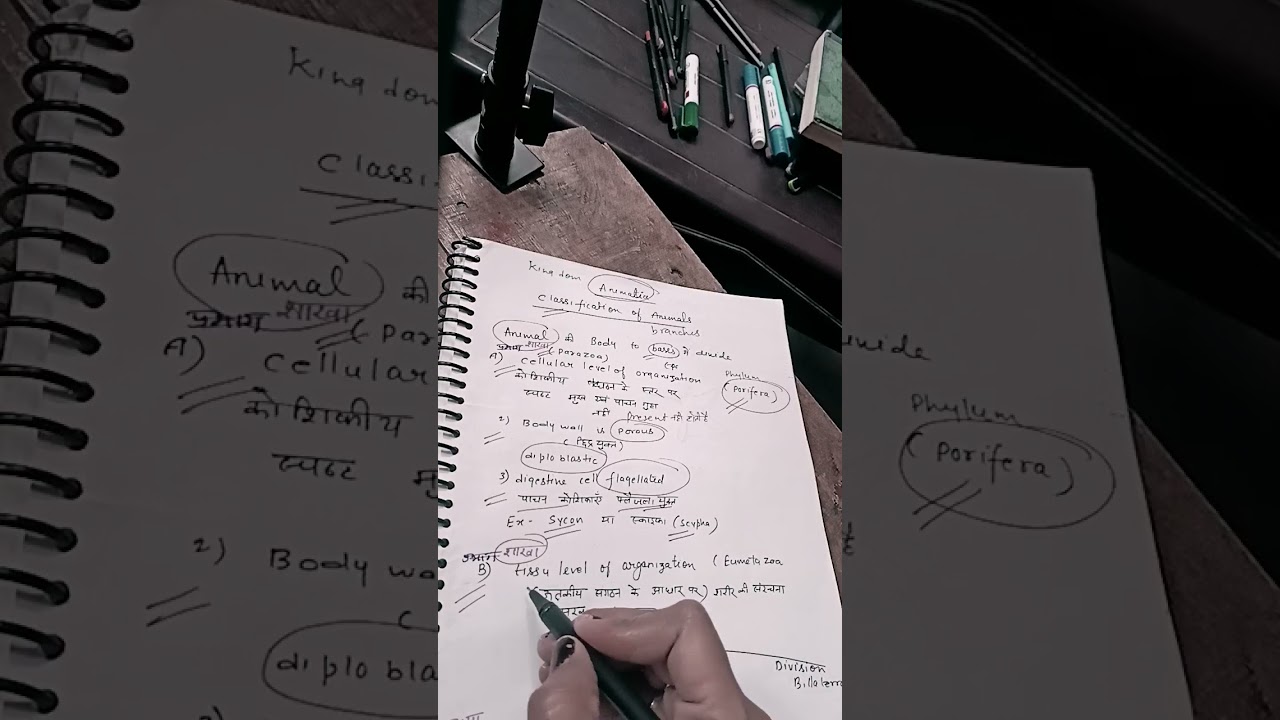 Kingdom Animalia
Classification of Animals
branches
Animal की Body to basis में divide
शाखा (Parazoa)
A) cellular level of organization
कोशिकीय संगठन के स्तर पर
स्पष्ट मुख एवं पाचन गुहा
नहीं present नहीं होती है
Phylum
(Porifera)
2) Body wall is porous
(छिद्र युक्त)
diploblastic
3) digestive cell flagellated
पाचन कोशिकाएँ फ्लैजेला युक्त
Ex- Sycon या स्काइफा (Scypha)
शाखा
B) tissu level of organization (Eumetazoa
ऊतकीय संगठन के आधार पर) शरीर की संरचना
Division